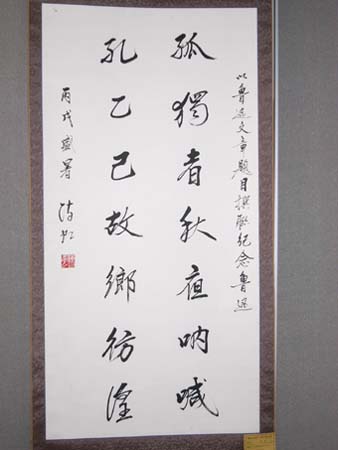 以魯迅文章題目撰聯紀念魯迅
孤獨者秋夜吶喊
孔乙己故鄉彷徨
丙戌盛署